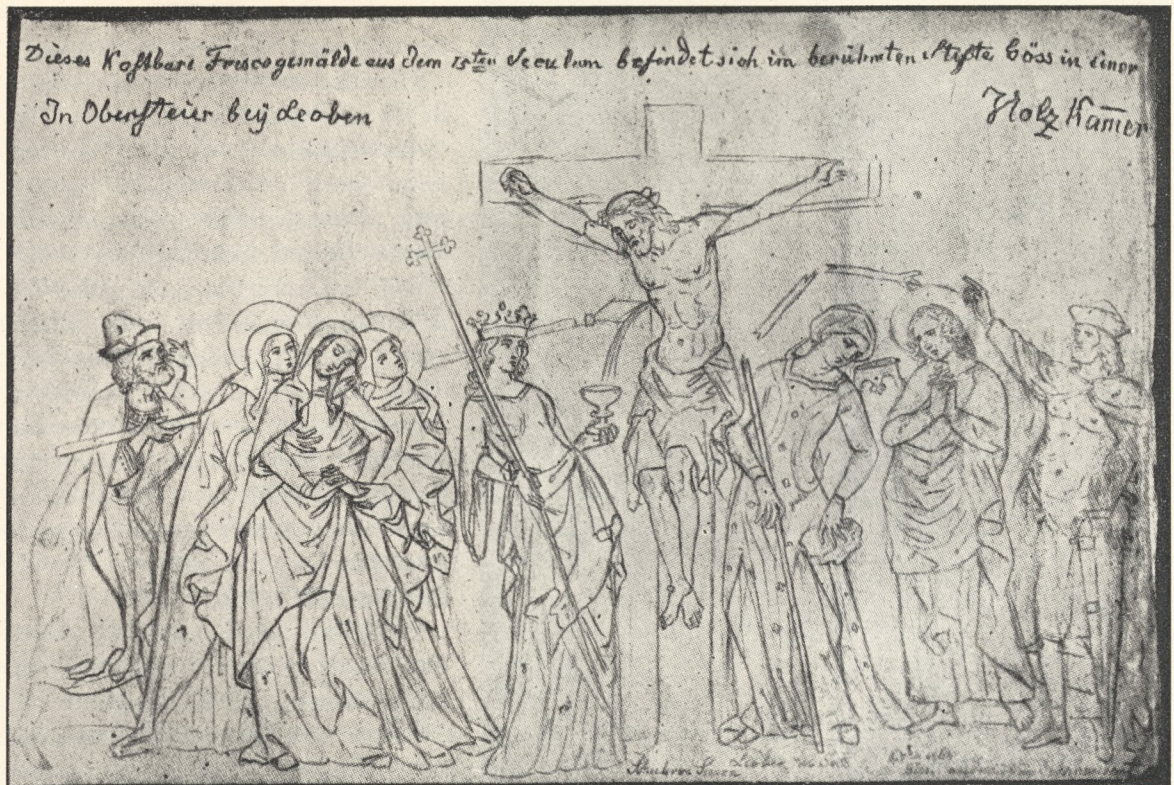 Dieses Kostbare Frescogemälde aus dem 15ten Seculum befindet sich im berühmten Stifte Göss in einer
Holz Kam̄er
In Obersteier beÿ Leoben